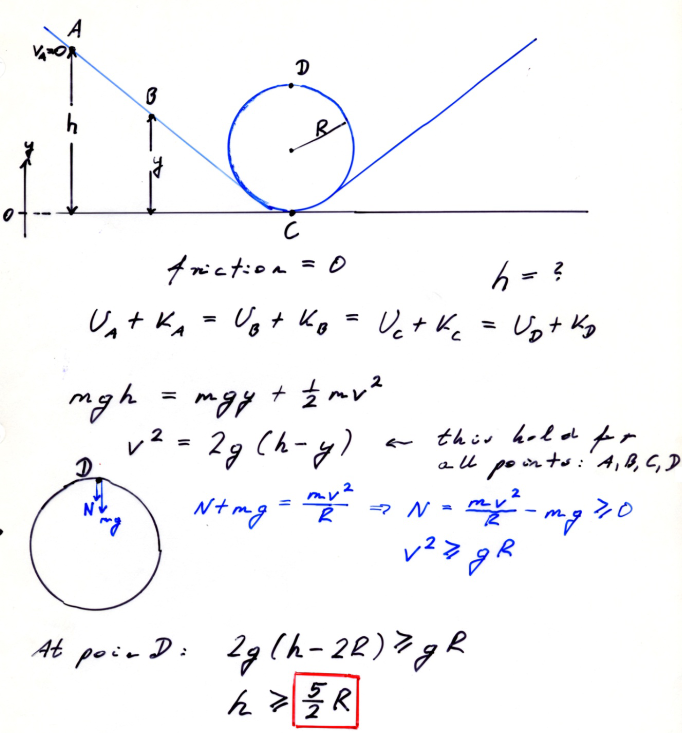 A
v_A=0
D
B
h
R
y
y
0
C
friction = 0
h = ?
U_A + K_A = U_B + K_B = U_C + K_C = U_D + K_D
mgh = mgy + 1/2 mv²
v² = 2g(h-y) ← this hold for
all points: A, B, C, D
D
N
mg
N + mg = mv²/R ⇒ N = mv²/R - mg ≥ 0
v² ≥ gR
At poin D: 2g(h-2R) ≥ gR
h ≥ 5/2 R